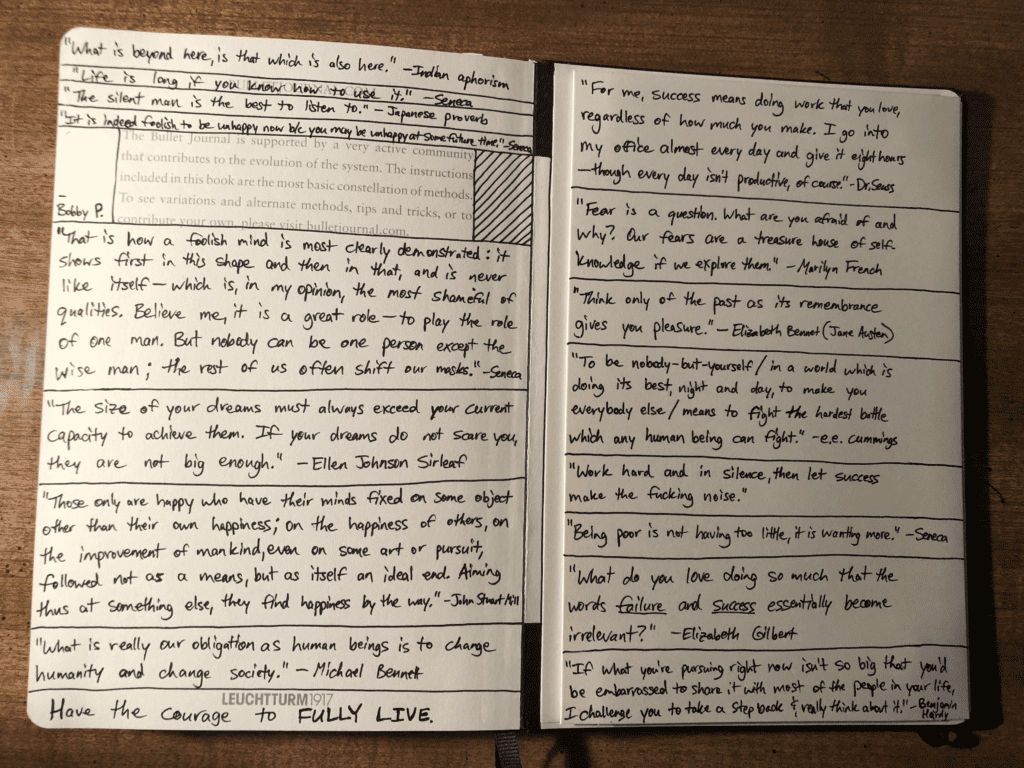 "What is beyond here, is that which is also here." —Indian aphorism
"Life is long if you know how to use it." —Seneca
"The silent man is the best to listen to." — Japanese proverb
"It is indeed foolish to be unhappy now b/c you may be unhappy at some future time."-Seneca
The Bullet Journal is supported by a very active community
that contributes to the evolution of the system. The instructions
included in this book are the most basic constellation of methods.
To see variations and alternate methods, tips and tricks, or to
contribute your own, please visit bulletjournal.com.
–
Bobby P.
"That is how a foolish mind is most clearly demonstrated: it
shows first in this shape and then in that, and is never
like itself — which is, in my opinion, the most shameful of
qualities. Believe me, it is a great role — to play the role
of one man. But nobody can be one person except the
wise man; the rest of us often shift our masks." -Seneca
"The size of your dreams must always exceed your current
capacity to achieve them. If your dreams do not scare you,
they are not big enough." —Ellen Johnson Sirleaf
"Those only are happy who have their minds fixed on some object
other than their own happiness; on the happiness of others, on
the improvement of mankind, even on some art or pursuit,
followed not as a means, but as itself an ideal end. Aiming
thus at something else, they find happiness by the way." -John Stuart Mill
"What is really our obligation as human beings is to change
humanity and change society." — Michael Bennett
LEUCHTTURM1917
Have the courage to FULLY LIVE.
"For me, success means doing work that you love,
regardless of how much you make. I go into
my office almost every day and give it eight hours
—though every day isn't productive, of course."-Dr. Seuss
"Fear is a question. What are you afraid of and
why? Our fears are a treasure house of self-
knowledge if we explore them." —Marilyn French
"Think only of the past as its remembrance
gives you pleasure." — Elizabeth Bennet (Jane Austen)
"To be nobody-but-yourself / in a world which is
doing its best, night and day, to make you
everybody else / means to fight the hardest battle
which any human being can fight." -e.e. cummings
"Work hard and in silence, then let success
make the fucking noise."
"Being poor is not having too little, it is wanting more." -Seneca
"What do you love doing so much that the
words failure and success essentially become
irrelevant?" —Elizabeth Gilbert
"If what you're pursuing right now isn't so big that you'd
be embarrassed to share it with most of the people in your life,
I challenge you to take a step back & really think about it."-Benjamin
Hardy